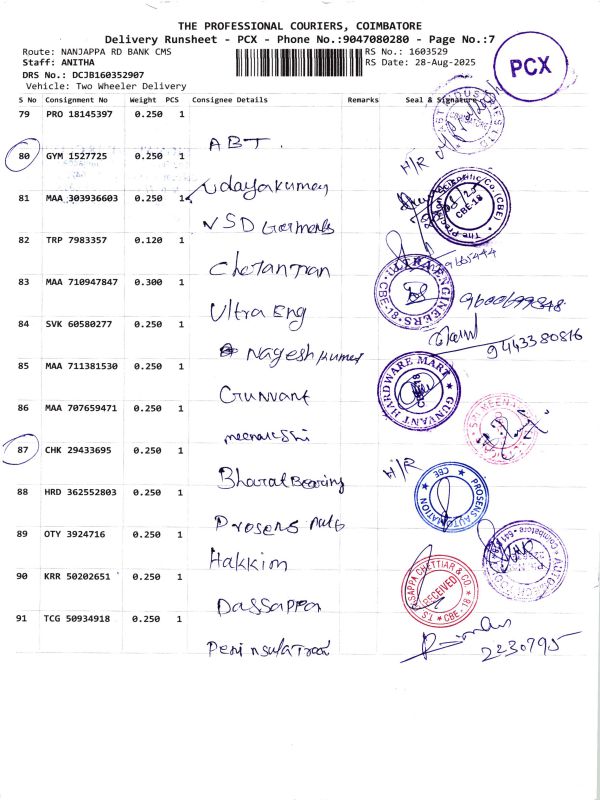 THE PROFESSIONAL COURIERS, COIMBATORE
Delivery Runsheet - PCX - Phone No.:9047080280 - Page No.:7
Route: NANJAPPA RD BANK CMS
RS No.: 1603529
Staff: ANITHA
RS Date: 28-Aug-2025
DRS No.: DCJB160352907
Vehicle: Two Wheeler Delivery
PCX
S No Consignment No Weight PCS Consignee Details Remarks Seal & Signature
79 PRO 18145397 0.250 1
ABT.
H/R
80 GYM 1527725 0.250 1
Udayakumar
81 MAA 303936603 0.250 1
VSD Garments
82 TRP 7983357 0.120 1
Chetantran
83 MAA 710947847 0.300 1
Ultra Eng
ULTRA ENGINEERS CBE-18
9600699848
84 SVK 60580277 0.250 1
Nagesh Kumar
9443380816
85 MAA 711381530 0.250 1
Gunvant
GUNVANT HARDWARE MART
86 MAA 707659471 0.250 1
meenakshi
87 CHK 29433695 0.250 1
Bharat Bearing
H/R
88 HRD 362552803 0.250 1
Prosens Auto
PROSENS AUTOMATION CBE
89 OTY 3924716 0.250 1
Hakkim
90 KRR 50202651 0.250 1
Dassappa
RECEIVED
91 TCG 50934918 0.250 1
2230795